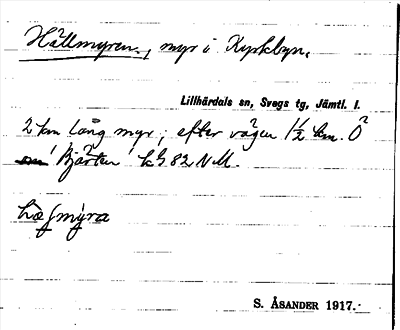 Hällmyren, myr i Kyrkbyn.
Lillhärdals sn, Svegs tg, Jämtl. l.
2 km lång myr; efter vägen 1½ km. Ö
om Björten k b 82 N M.
S. ÅSANDER 1917.